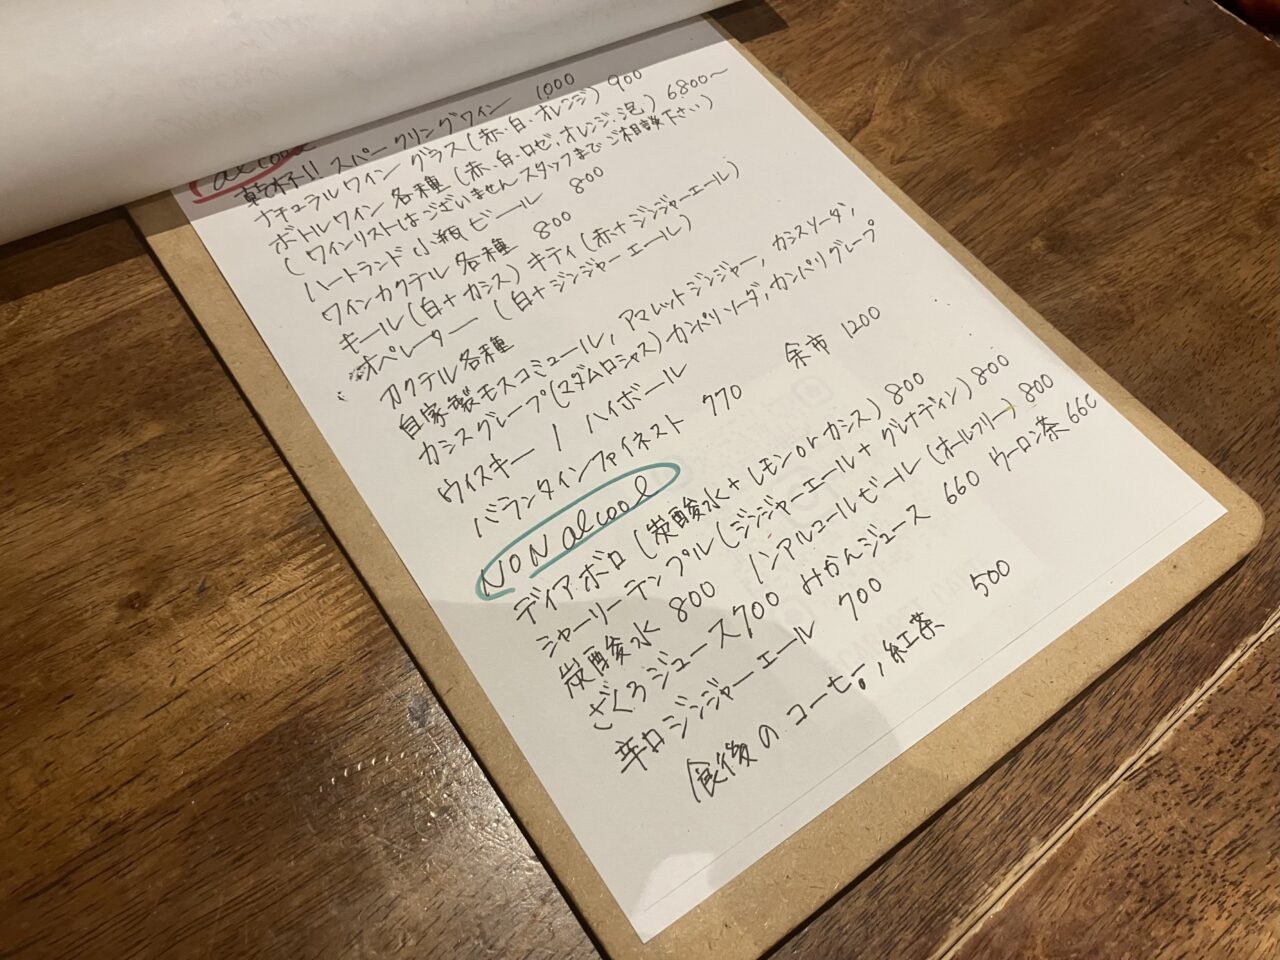 alcool
乾杯!! スパークリングワイン 1000
ナチュラルワイン グラス(赤・白・オレンジ) 900
ボトルワイン 各種(赤・白・ロゼ・オレンジ・泡) 6800〜
(ワインリストはございませんスタッフまでご相談下さい)
ハートランド 小瓶ビール 800
ワインカクテル 各種 800
キール(白+カシス) キティ(赤+ジンジャーエール)
オペレーター (白+ジンジャーエール)
カクテル各種
自家製モスコミュール, アマレットジンジャー, カシスソーダ,
カシスグレープ(マダムロシャス) カンパリソーダ, カンパリグレープ
ウィスキー / ハイボール
バランタインファイネスト 770 余市 1200
NON alcool
ディアボロ(炭酸水+レモンorカシス) 800
シャーリーテンプル(ジンジャーエール+グレナディン) 800
炭酸水 800 ノンアルコールビール(オールフリー) 800
ざくろジュース 700 みかんジュース 660 ウーロン茶 660
辛口ジンジャーエール 700
食後の コーヒー, 紅茶 500